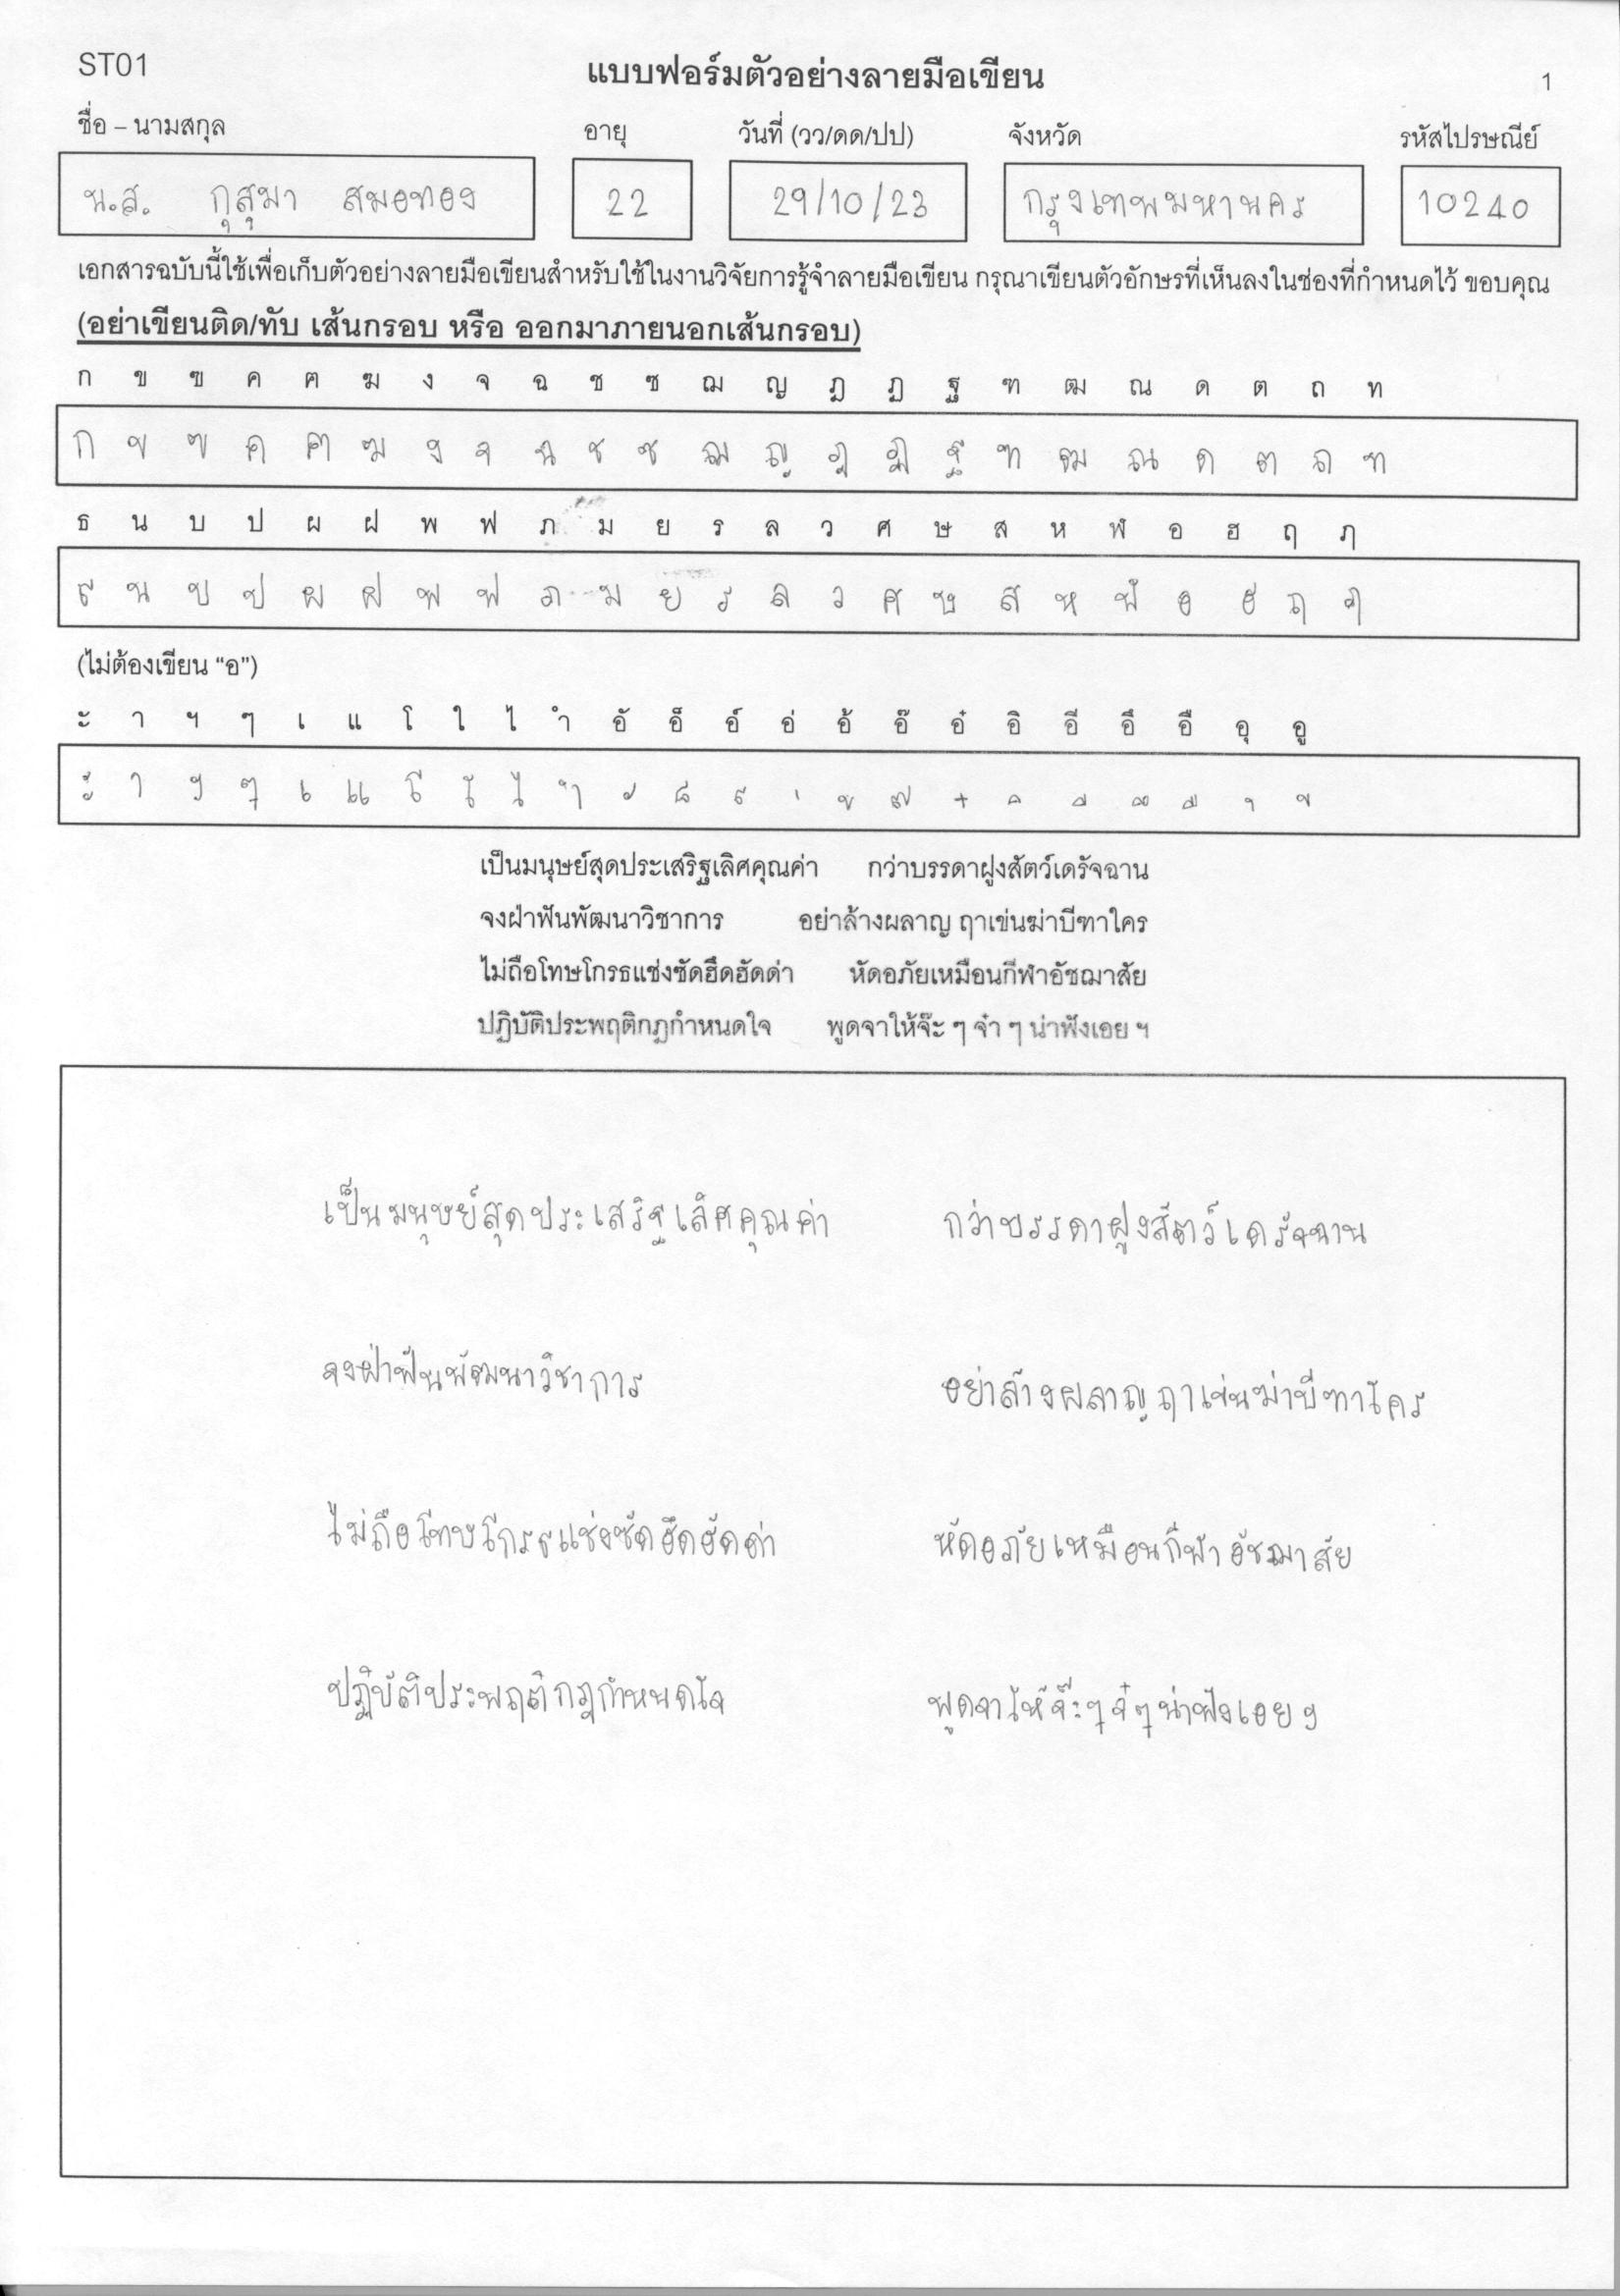 ST01 แบบฟอร์มตัวอย่างลายมือเขียน 1
ชื่อ – นามสกุล อายุ วันที่ (วว/ดด/ปป) จังหวัด รหัสไปรษณีย์
น.ส. กุสุมา สมอทอง 22 29/10/23 กรุงเทพมหานคร 10240
เอกสารฉบับนี้ใช้เพื่อเก็บตัวอย่างลายมือเขียนสำหรับใช้ในงานวิจัยการรู้จำลายมือเขียน กรุณาเขียนตัวอักษรที่เห็นลงในช่องที่กำหนดไว้ ขอบคุณ
(อย่าเขียนติด/ทับ เส้นกรอบ หรือ ออกมาภายนอกเส้นกรอบ)
ก ข ฃ ค ฅ ฆ ง จ ฉ ช ซ ฌ ญ ฎ ฏ ฐ ฑ ฒ ณ ด ต ถ ท
ก ข ฃ ค ฅ ฆ ง จ ฉ ช ซ ฌ ญ ฎ ฏ ฐ ฑ ฒ ณ ด ต ถ ท
ธ น บ ป ผ ฝ พ ฟ ภ ม ย ร ล ว ศ ษ ส ห ฬ อ ฮ ฤ ฦ
ธ น บ ป ผ ฝ พ ฟ ภ ม ย ร ล ว ศ ษ ส ห ฬ อ ฮ ฤ ฦ
(ไม่ต้องเขียน “อ”)
ะ า ฯ ๆ เ แ โ ใ ไ ำ อั อ็ อ์ อ่ อ้ อ๊ อ๋ อิ อี อึ อื อุ อู
ะ า ฯ ๆ เ แ โ ใ ไ ำ ั ็ ์ ่ ้ ๊ ๋ ิ ี ึ ื ุ ู
เป็นมนุษย์สุดประเสริฐเลิศคุณค่า กว่าบรรดาฝูงสัตว์เดรัจฉาน
จงฝ่าฟันพัฒนาวิชาการ อย่าล้างผลาญ ฤาเข่นฆ่าบีฑาใคร
ไม่ถือโทษโกรธแช่งซัดฮึดฮัดด่า หัดอภัยเหมือนกีฬาอัชฌาสัย
ปฏิบัติประพฤติกฎกำหนดใจ พูดจาให้จ๊ะ ๆ จ๋า ๆ น่าฟังเอย ฯ
เป็นมนุษย์สุดประเสริฐเลิศคุณค่า กว่าบรรดาฝูงสัตว์เดรัจฉาน
จงฝ่าฟันพัฒนาวิชาการ อย่าล้างผลาญ ฤาเข่นฆ่าบีฑาใคร
ไม่ถือโทษโกรธแช่งซัดฮึดฮัดด่า หัดอภัยเหมือนกีฬาอัชฌาสัย
ปฏิบัติประพฤติกฎกำหนดใจ พูดจาให้จ๊ะๆจ๋ๆน่าฟังเอยฯ